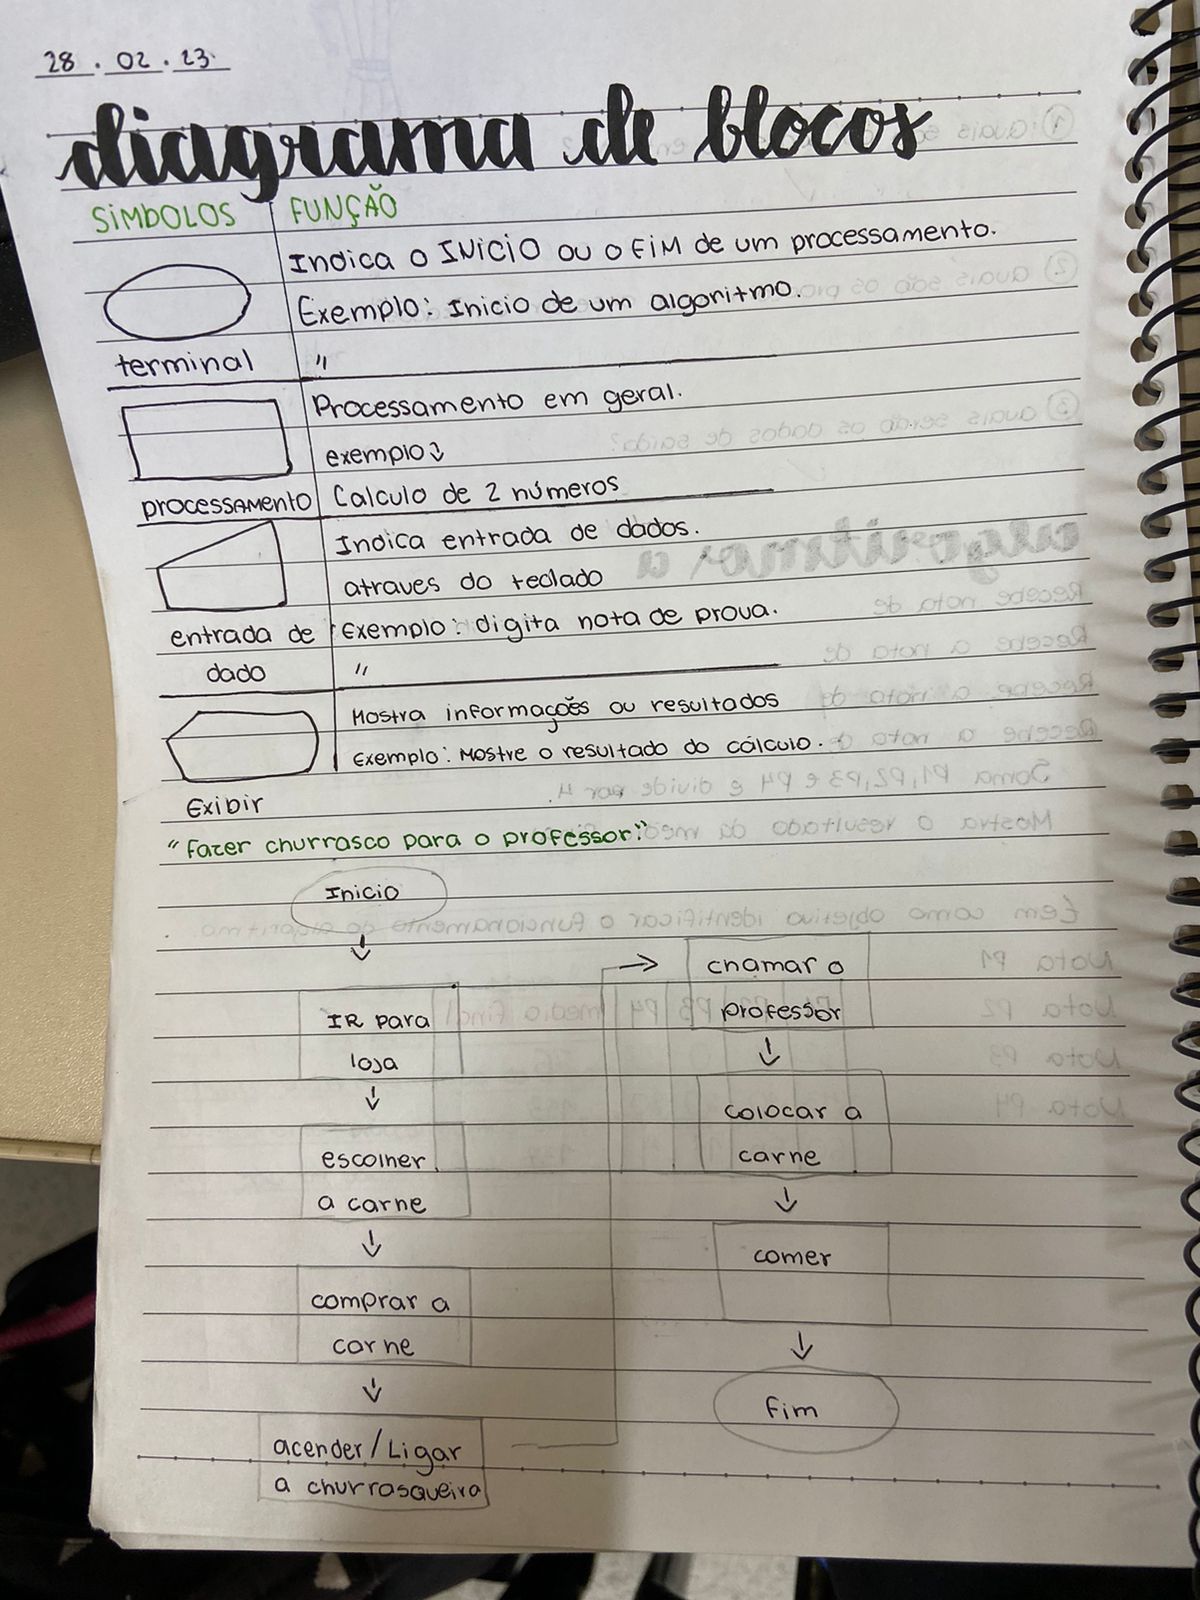 28 . 02 . 23
diagrama de blocos
SÍMBOLOS FUNÇÃO
Indica o INICIO ou o FIM de um processamento.
Exemplo: Inicio de um algoritmo.
terminal "
Processamento em geral.
exemplo↓
processamento Calculo de 2 números
Indica entrada de dados.
atraves do teclado
entrada de Exemplo: digita nota de prova.
dado "
Mostra informações ou resultados
Exemplo: Mostre o resultado do cálculo.
Exibir
"Fazer churrasco para o professor:"
Inicio
IR para
loja
escolher
a carne
comprar a
carne
acender/Ligar
a churrasqueira
chamar o
professor
colocar a
carne
comer
fim